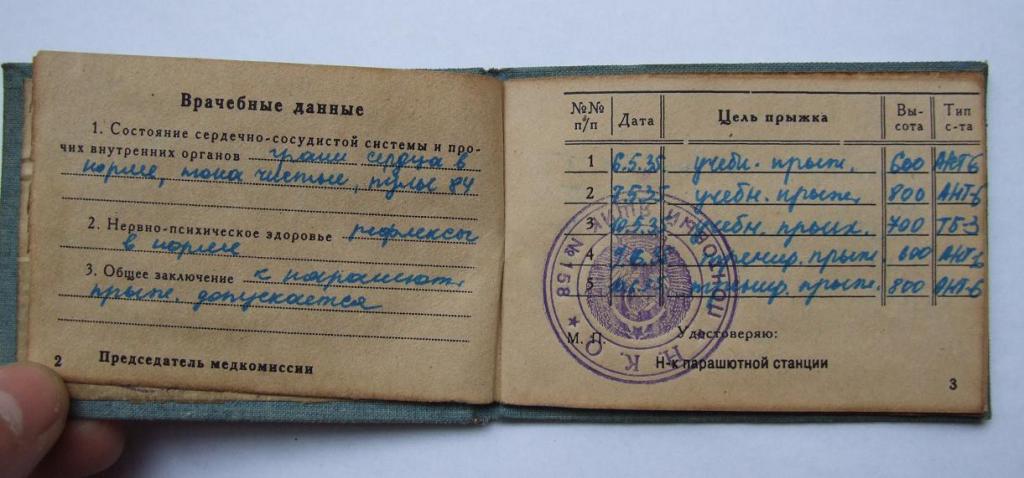 Врачебные данные
1. Состояние сердечно-сосудистой системы и про-
чих внутренних органов грани сердца в
норме, тона чистые, пульс 84
2. Нервно-психическое здоровье рефлексы
в норме
3. Общее заключение к парашют.
прыж. допускается
2 Председатель медкомиссии
№№ п/п Дата Цель прыжка Вы-сота Тип с-та
1 6.5.35 учебн. прыж. 600 АНТ-6
2 7.5.35 учебн. прыж. 800 АНТ-6
3 10.5.35 учебн. прыж. 700 ТБ-3
4 9.6.35 тренир. прыж. 600 АНТ-6
5 прыж. 800 АНТ-6
М. П. Удостоверяю:
Н-к парашютной станции
3
Н. К. О. № 158